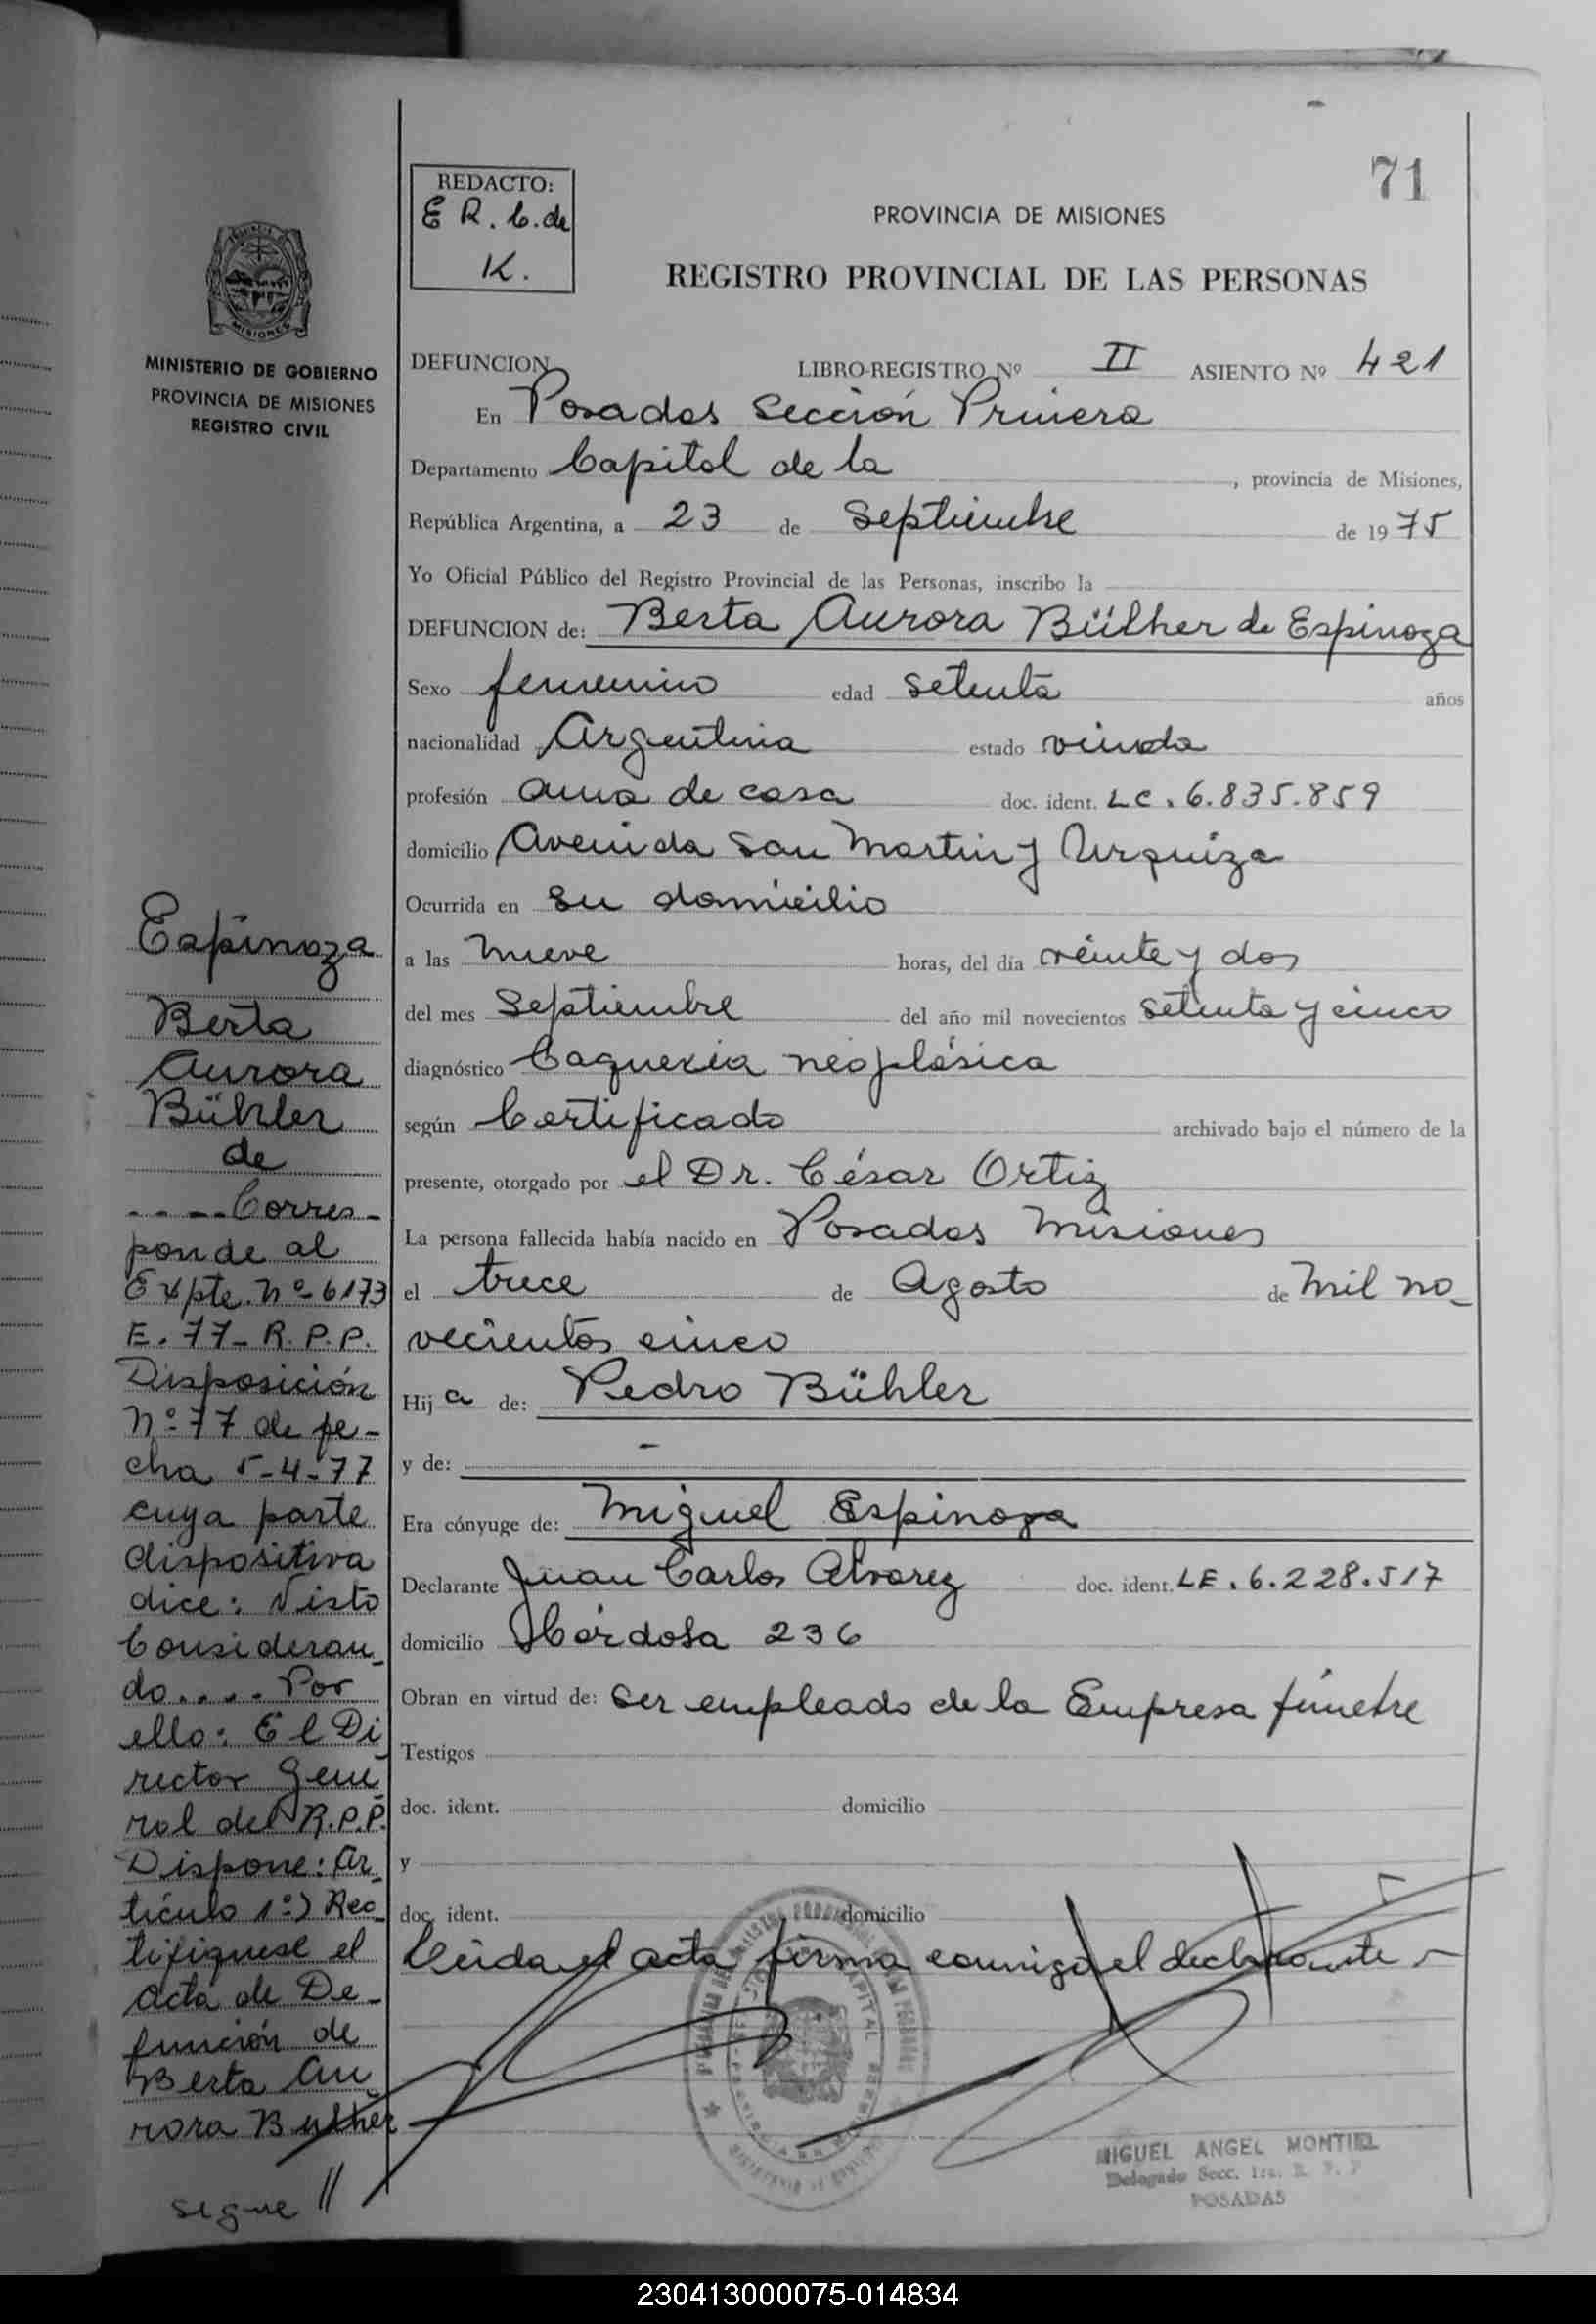 71
REDACTO:
E R. C. de
K.
PROVINCIA DE MISIONES
REGISTRO PROVINCIAL DE LAS PERSONAS
MISIONES
MINISTERIO DE GOBIERNO
PROVINCIA DE MISIONES
REGISTRO CIVIL
DEFUNCION LIBRO-REGISTRO Nº II ASIENTO Nº 421
En Posadas Sección Primera
Departamento Capital de la , provincia de Misiones,
República Argentina, a 23 de Septiembre de 1975
Yo Oficial Público del Registro Provincial de las Personas, inscribo la
DEFUNCION de: Berta Aurora Bülher de Espinoza
Sexo femenino edad setenta años
nacionalidad Argentina estado viuda
profesión ama de casa doc. ident. LC. 6.835.859
domicilio Avenida San Martin y Urquiza
Ocurrida en su domicilio
a las nueve horas, del día veinte y dos
del mes Septiembre del año mil novecientos setenta y cinco
diagnóstico Caquexia neoplásica
según Certificado archivado bajo el número de la
presente, otorgado por el Dr. César Ortiz
La persona fallecida había nacido en Posadas Misiones
el trece de Agosto de mil no-
vecientos cinco
Hija de: Pedro Bühler
y de: -
Era cónyuge de: Miguel Espinoza
Declarante Juan Carlos Alvarez doc. ident. LE. 6.228.517
domicilio Córdoba 236
Obran en virtud de: ser empleado de la Empresa fúnebre
Testigos
doc. ident. domicilio
y
doc. ident. domicilio
Leída el acta firma conmigo el declarante
MIGUEL ANGEL MONTIEL
Delegado Secc. 1ra. R. P. P
POSADAS
Espinoza
Berta
Aurora
Bühler
de
.... Corres-
ponde al
Expte. Nº 6173
E. 77- R. P. P.
Disposición
Nº 77 de fe-
cha 5-4-77
cuya parte
dispositiva
dice: Visto
Consideran-
do.... Por
ello: El Di
rector Gene
ral del R.P.P.
Dispone: Ar-
tículo 1º) Rec-
tifíquese el
acta de De-
función de
Berta Au-
rora Bulher
segue //
230413000075-014834